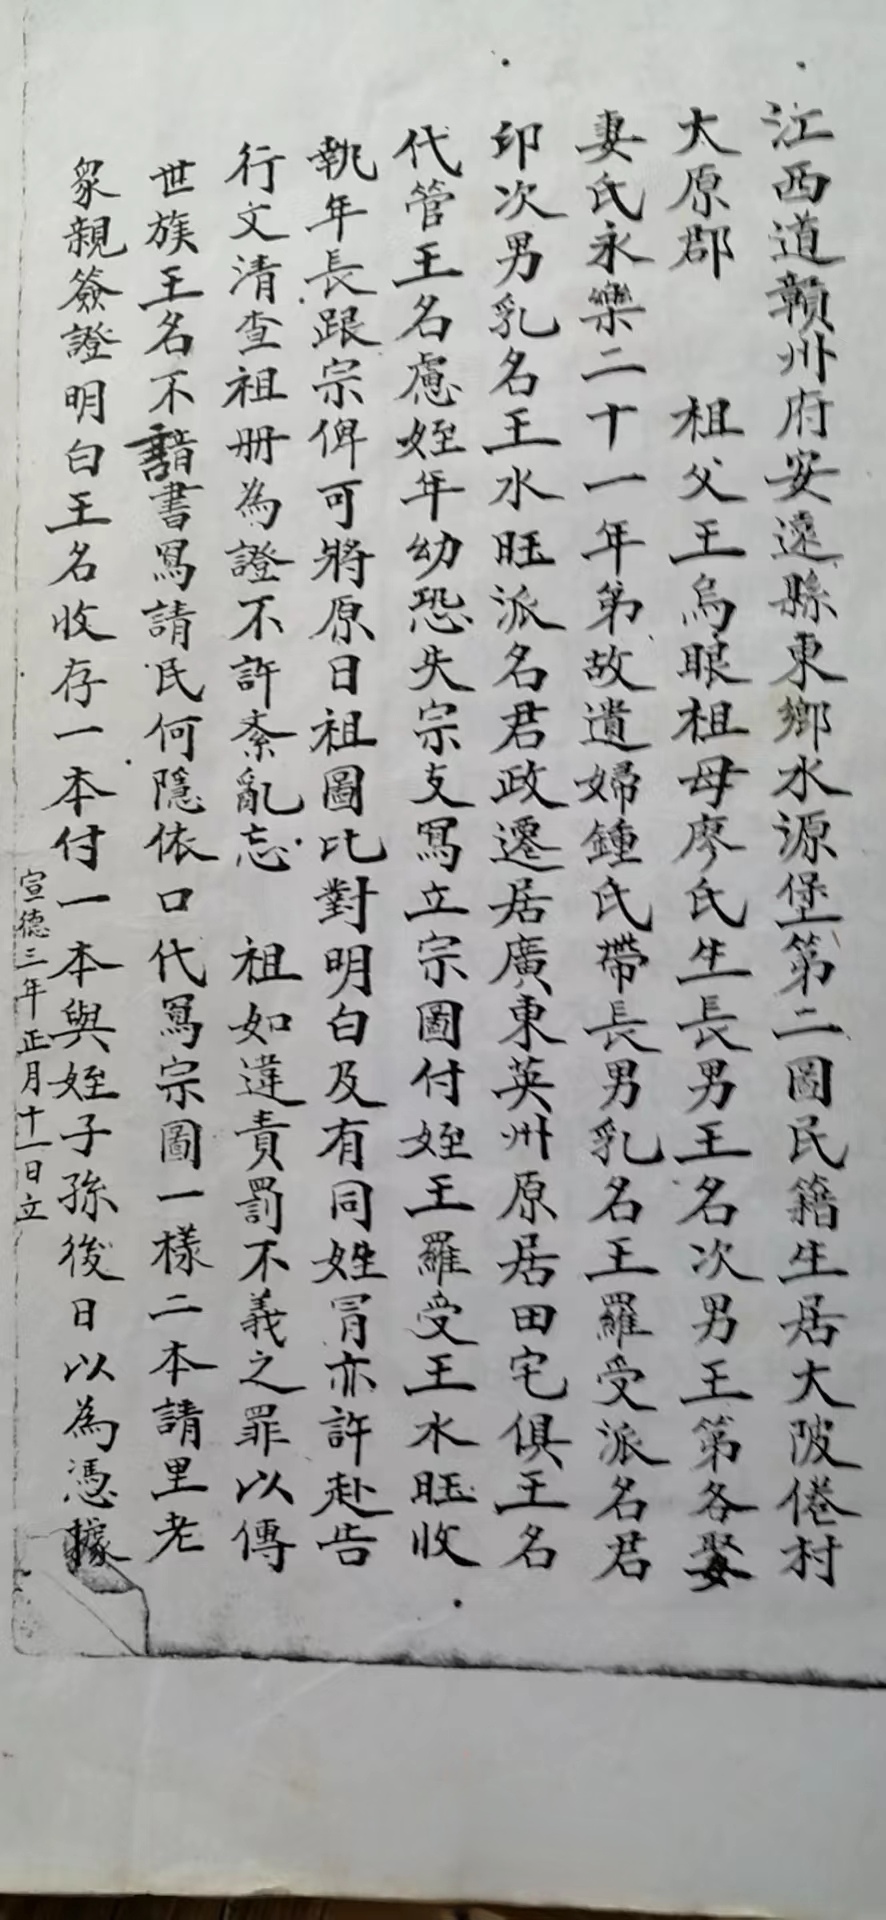 江西道贛州府安遠縣東鄉水源堡第二圖民籍生居大陂倦村
太原郡　祖父王烏眼祖母廖氏生長男王名次男王第各娶
妻氏永樂二十一年第故遺婦鍾氏帶長男乳名王羅受派名君
印次男乳名王水旺派名君政遷居廣東英州原居田宅俱王名
代管王名慮姪年幼恐失宗支寫立宗圖付姪王羅受王水旺收
執年長跟宗俾可將原日祖圖比對明白及有同姓冐亦許赴告
行文清查祖册為證不許紊亂忘　祖如違責罰不義之罪以傳
世族王名不諳書寫請民何隱依口代寫宗圖一樣二本請里老
眾親簽證明白王名收存一本付一本與姪子孫後日以為憑據
宣德三年正月十一日立